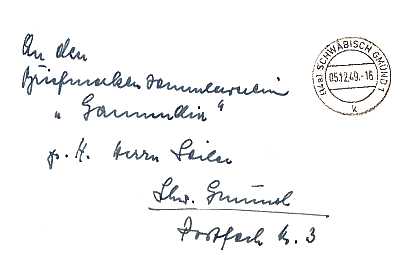 An den
Briefmarkensammlerverein
„Gamundia"
z. H. Herrn Seiler
Schw. Gmünd
Postfach Nr. 3
(14a) SCHWÄBISCH GMÜND 1
05.12.49.-16
k